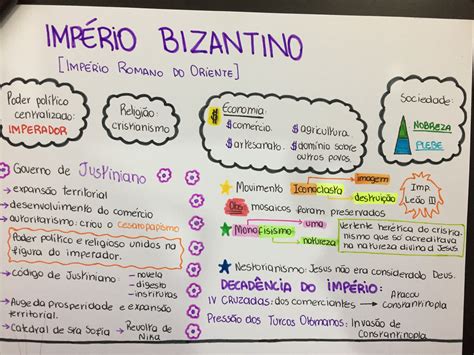 IMPÉRIO BIZANTINO
[IMPÉRIO ROMANO DO ORIENTE]
Poder político
centralizado:
IMPERADOR
Religião:
cristianismo
$ Economia:
$comércio. $agricultura.
$artesanato. $domínio sobre
outros povos.
Sociedade:
NOBREZA
PLEBE
Governo de Justiniano
→ expansão territorial
→ desenvolvimento do comércio
→ autoritarismo: criou o cesaropapismo
Poder político e religioso unidos na
figura do imperador.
→ código de Justiniano: - novela
- digesto
- institutas
→ Auge da prosperidade e expansão
territorial.
→ Catedral de Sta Sofia → Revolta de
Nika
Movimento Iconoclasta
imagem
destruição
Imp.
Leão III
Obs mosaicos foram preservados
Monofisismo
uma
natureza
Vertente herética do cristia
nismo que só acreditava
na natureza divina d Jesus
Nestorianismo: Jesus não era considerado Deus.
DECADÊNCIA DO IMPÉRIO:
IV CRUZADAS: dos comerciantes → Atacou
Constantinopla
Pressão dos Turcos Otomanos: Invasão de
Constantinopla